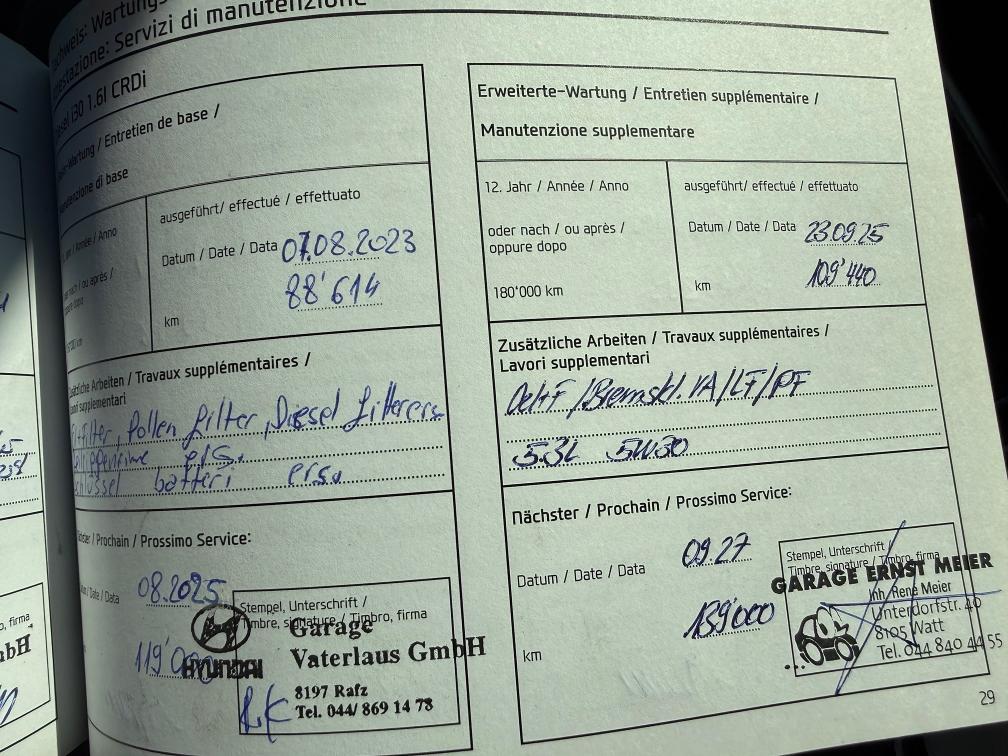 Nachweis: Wartungs
Attestazione: Servizi di manutenzione
Diesel i30 1.6l CRDi
Wartung / Entretien de base /
Manutenzione di base
Jahr / Année / Anno
oder nach / ou après /
oppure dopo
ausgeführt/ effectué / effettuato
Datum / Date / Data 07.08.2023
88'614
km
Zusätzliche Arbeiten / Travaux supplémentaires /
Lavori supplementari
filter, Pollen filter, Diesel filter ers.
ers.
schlüssel batteri ers.
Nächster / Prochain / Prossimo Service:
Datum / Date / Data 08.2025
119'000
Stempel, Unterschrift /
Timbre, signature / Timbro, firma
HYUNDAI
Garage
Vaterlaus GmbH
8197 Rafz
Tel. 044/ 869 14 78
Erweiterte-Wartung / Entretien supplémentaire /
Manutenzione supplementare
12. Jahr / Année / Anno
oder nach / ou après /
oppure dopo
180'000 km
ausgeführt/ effectué / effettuato
Datum / Date / Data 23.09.25
km 109'440
Zusätzliche Arbeiten / Travaux supplémentaires /
Lavori supplementari
Oel+F /Bremskl. VA/LF/PF
5.3L 5W30
Nächster / Prochain / Prossimo Service:
Datum / Date / Data 09.27
km 139'000
Stempel, Unterschrift /
Timbre, signature / Timbro, firma
GARAGE ERNST MEIER
Inh. René Meier
Unterdorfstr. 40
8105 Watt
Tel. 044 840 44 55
29